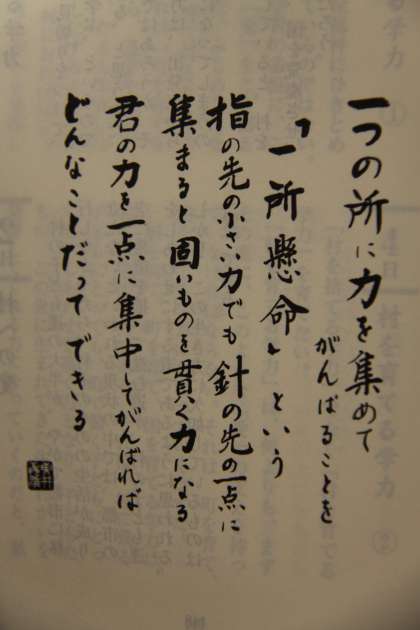 一つの所に力を集めて
がんばることを
「一所懸命」という
指の先の小さい力でも針の先の一点に
集まると固いものを貫く力になる
君の力を一点に集中してがんばれば
どんなことだってできる